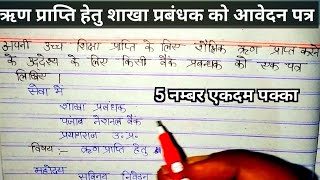 ऋण प्राप्ति हेतु शाखा प्रबंधक को आवेदन पत्र
अपनी उच्च शिक्षा प्राप्ति के लिए शैक्षिक ऋण प्राप्त करने
के उद्देश्य के लिए किसी बैंक प्रबन्धक को एक पत्र
लिखिए।
सेवा में
5 नम्बर एकदम पक्का
शाखा प्रबंधक
पंजाब नेशनल बैंक
प्रयागराज उ.प्र.
विषय:- ऋण प्राप्ति हेतु
महोदय
सविनय निवेदन